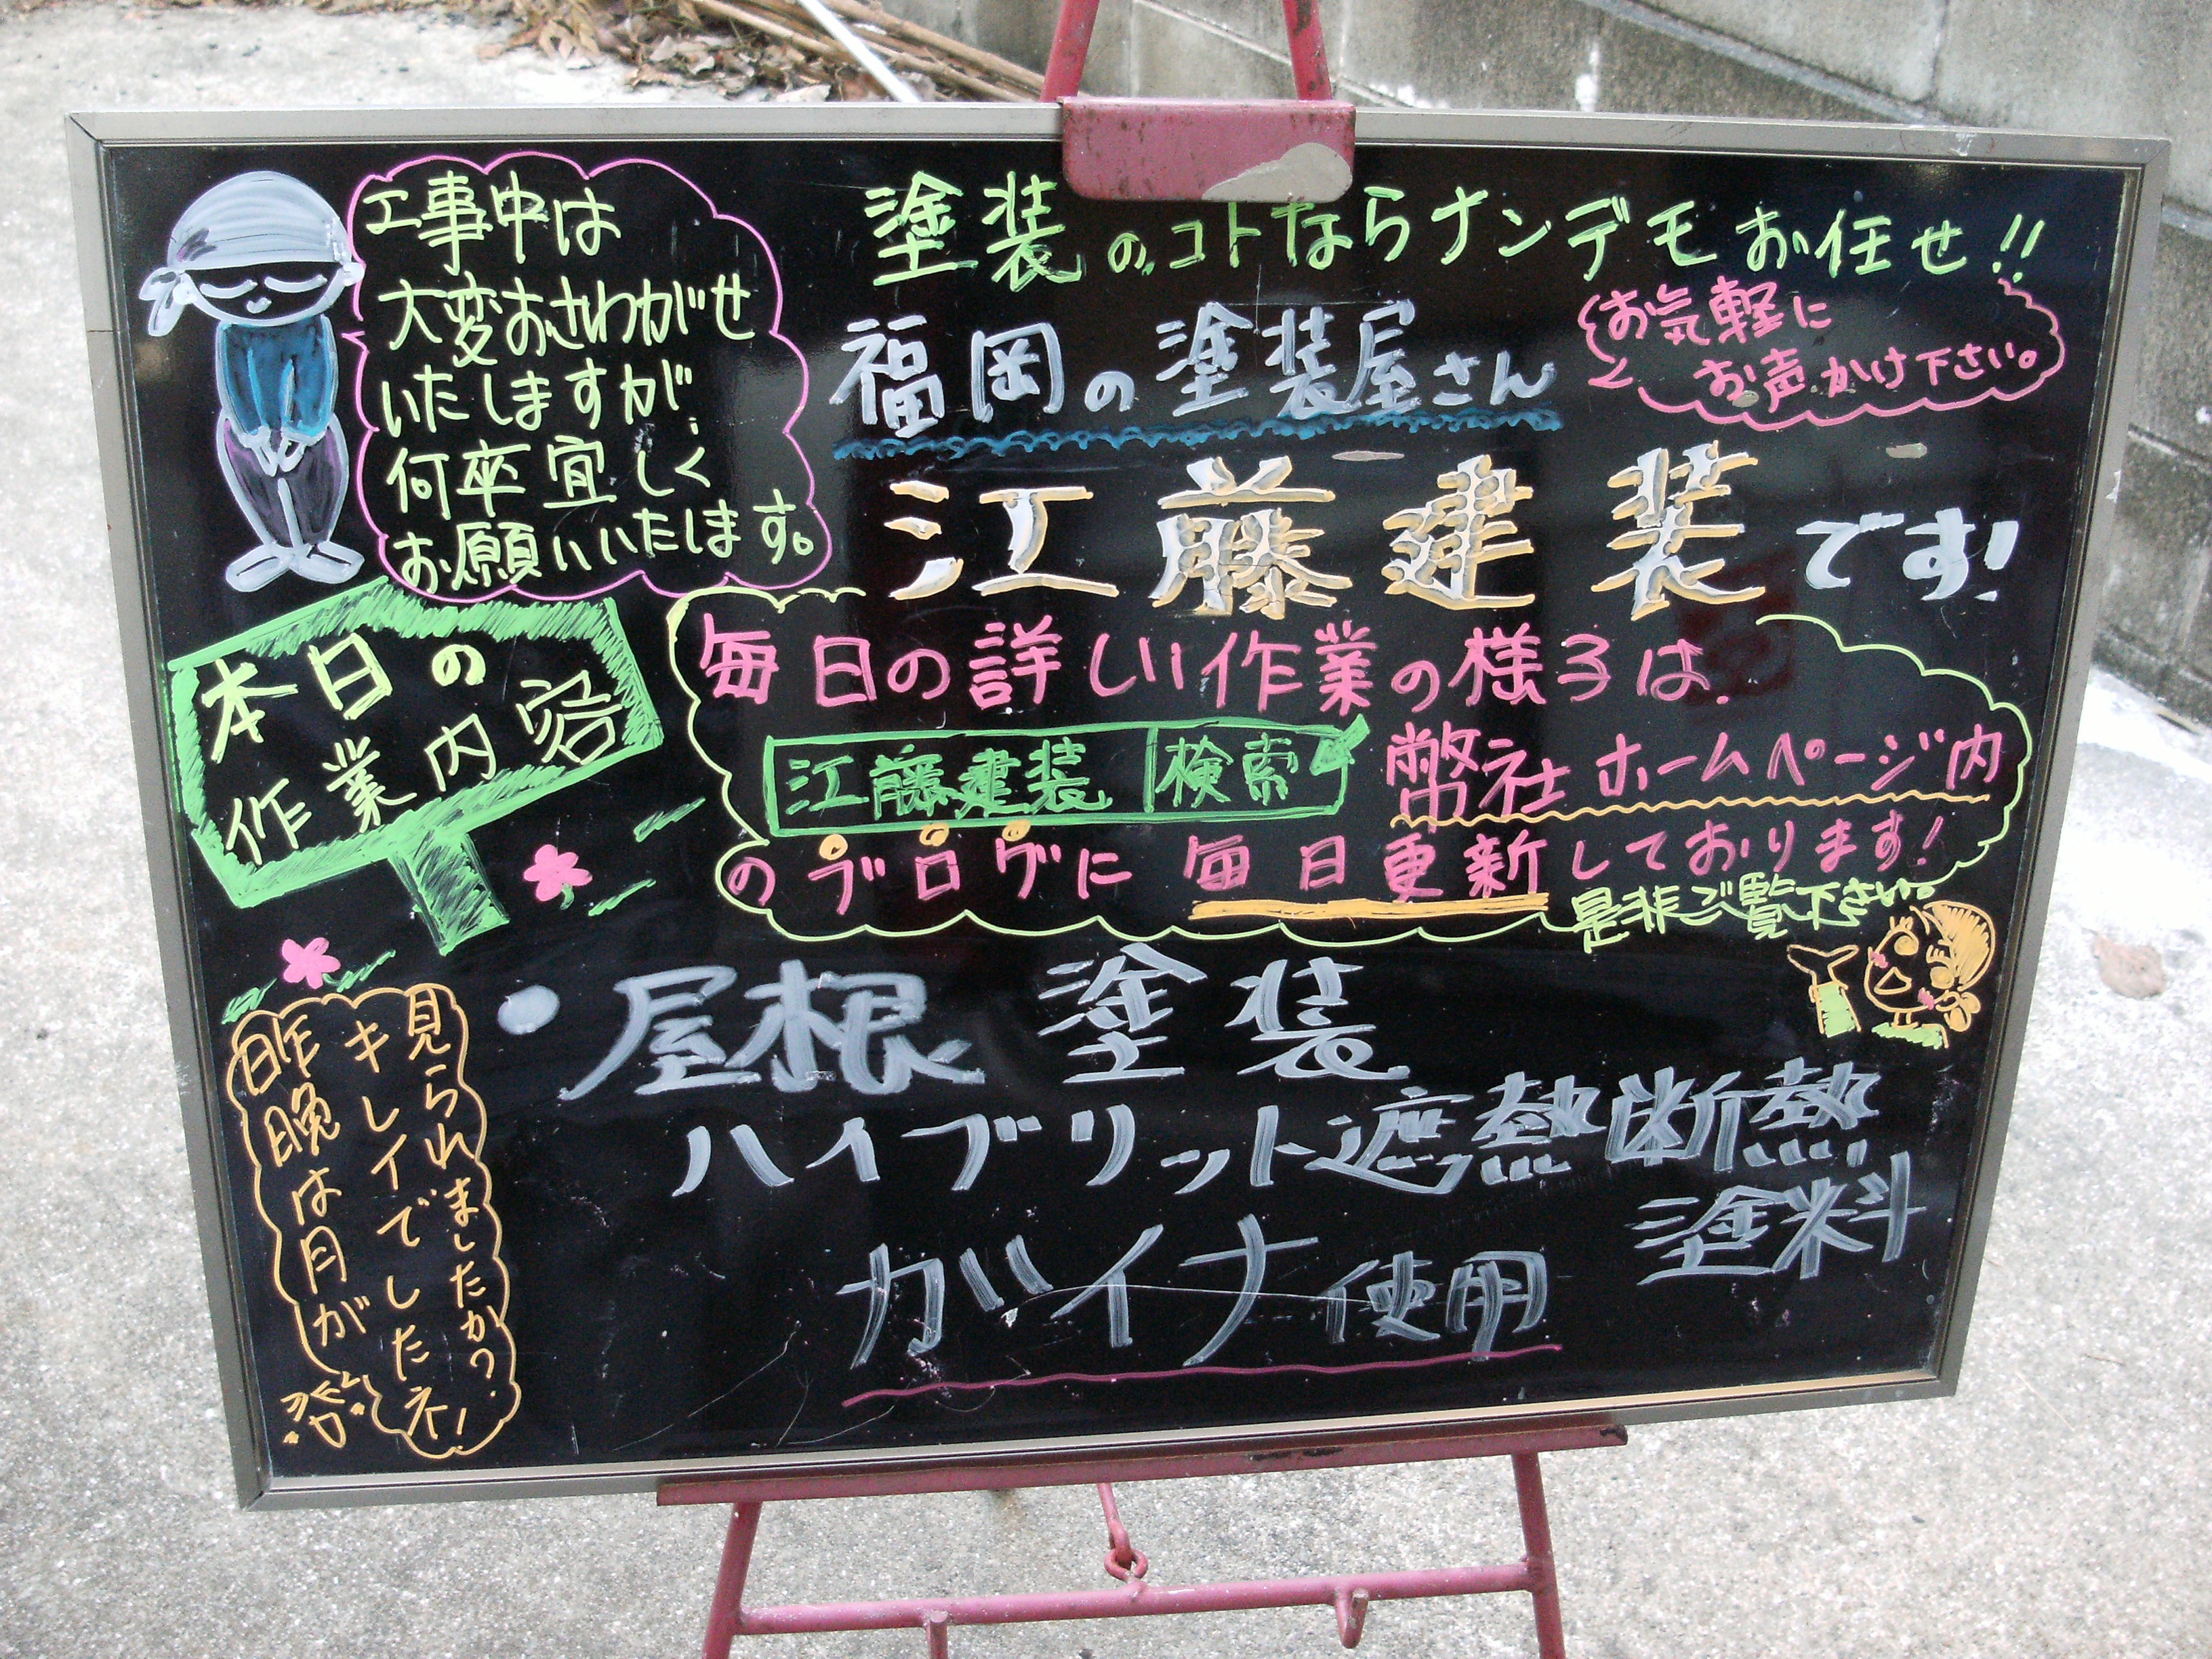 工事中は
大変おさわがせ
いたしますが、
何卒宜しく
お願いいたします。
塗装のコトならナンデモお任せ!!
福岡の塗装屋さん
お気軽に
お声かけ下さい。
江藤建装です!
本日の
作業内容
毎日の詳しい作業の様子は、
江藤建装 検索
弊社ホームページ内
のブログに毎日更新しております!
是非ご覧下さい。
・屋根塗装
ハイブリット遮熱断熱
塗料
ガイナ使用
見られましたか?
昨晩は月が
キレイでしたネ!